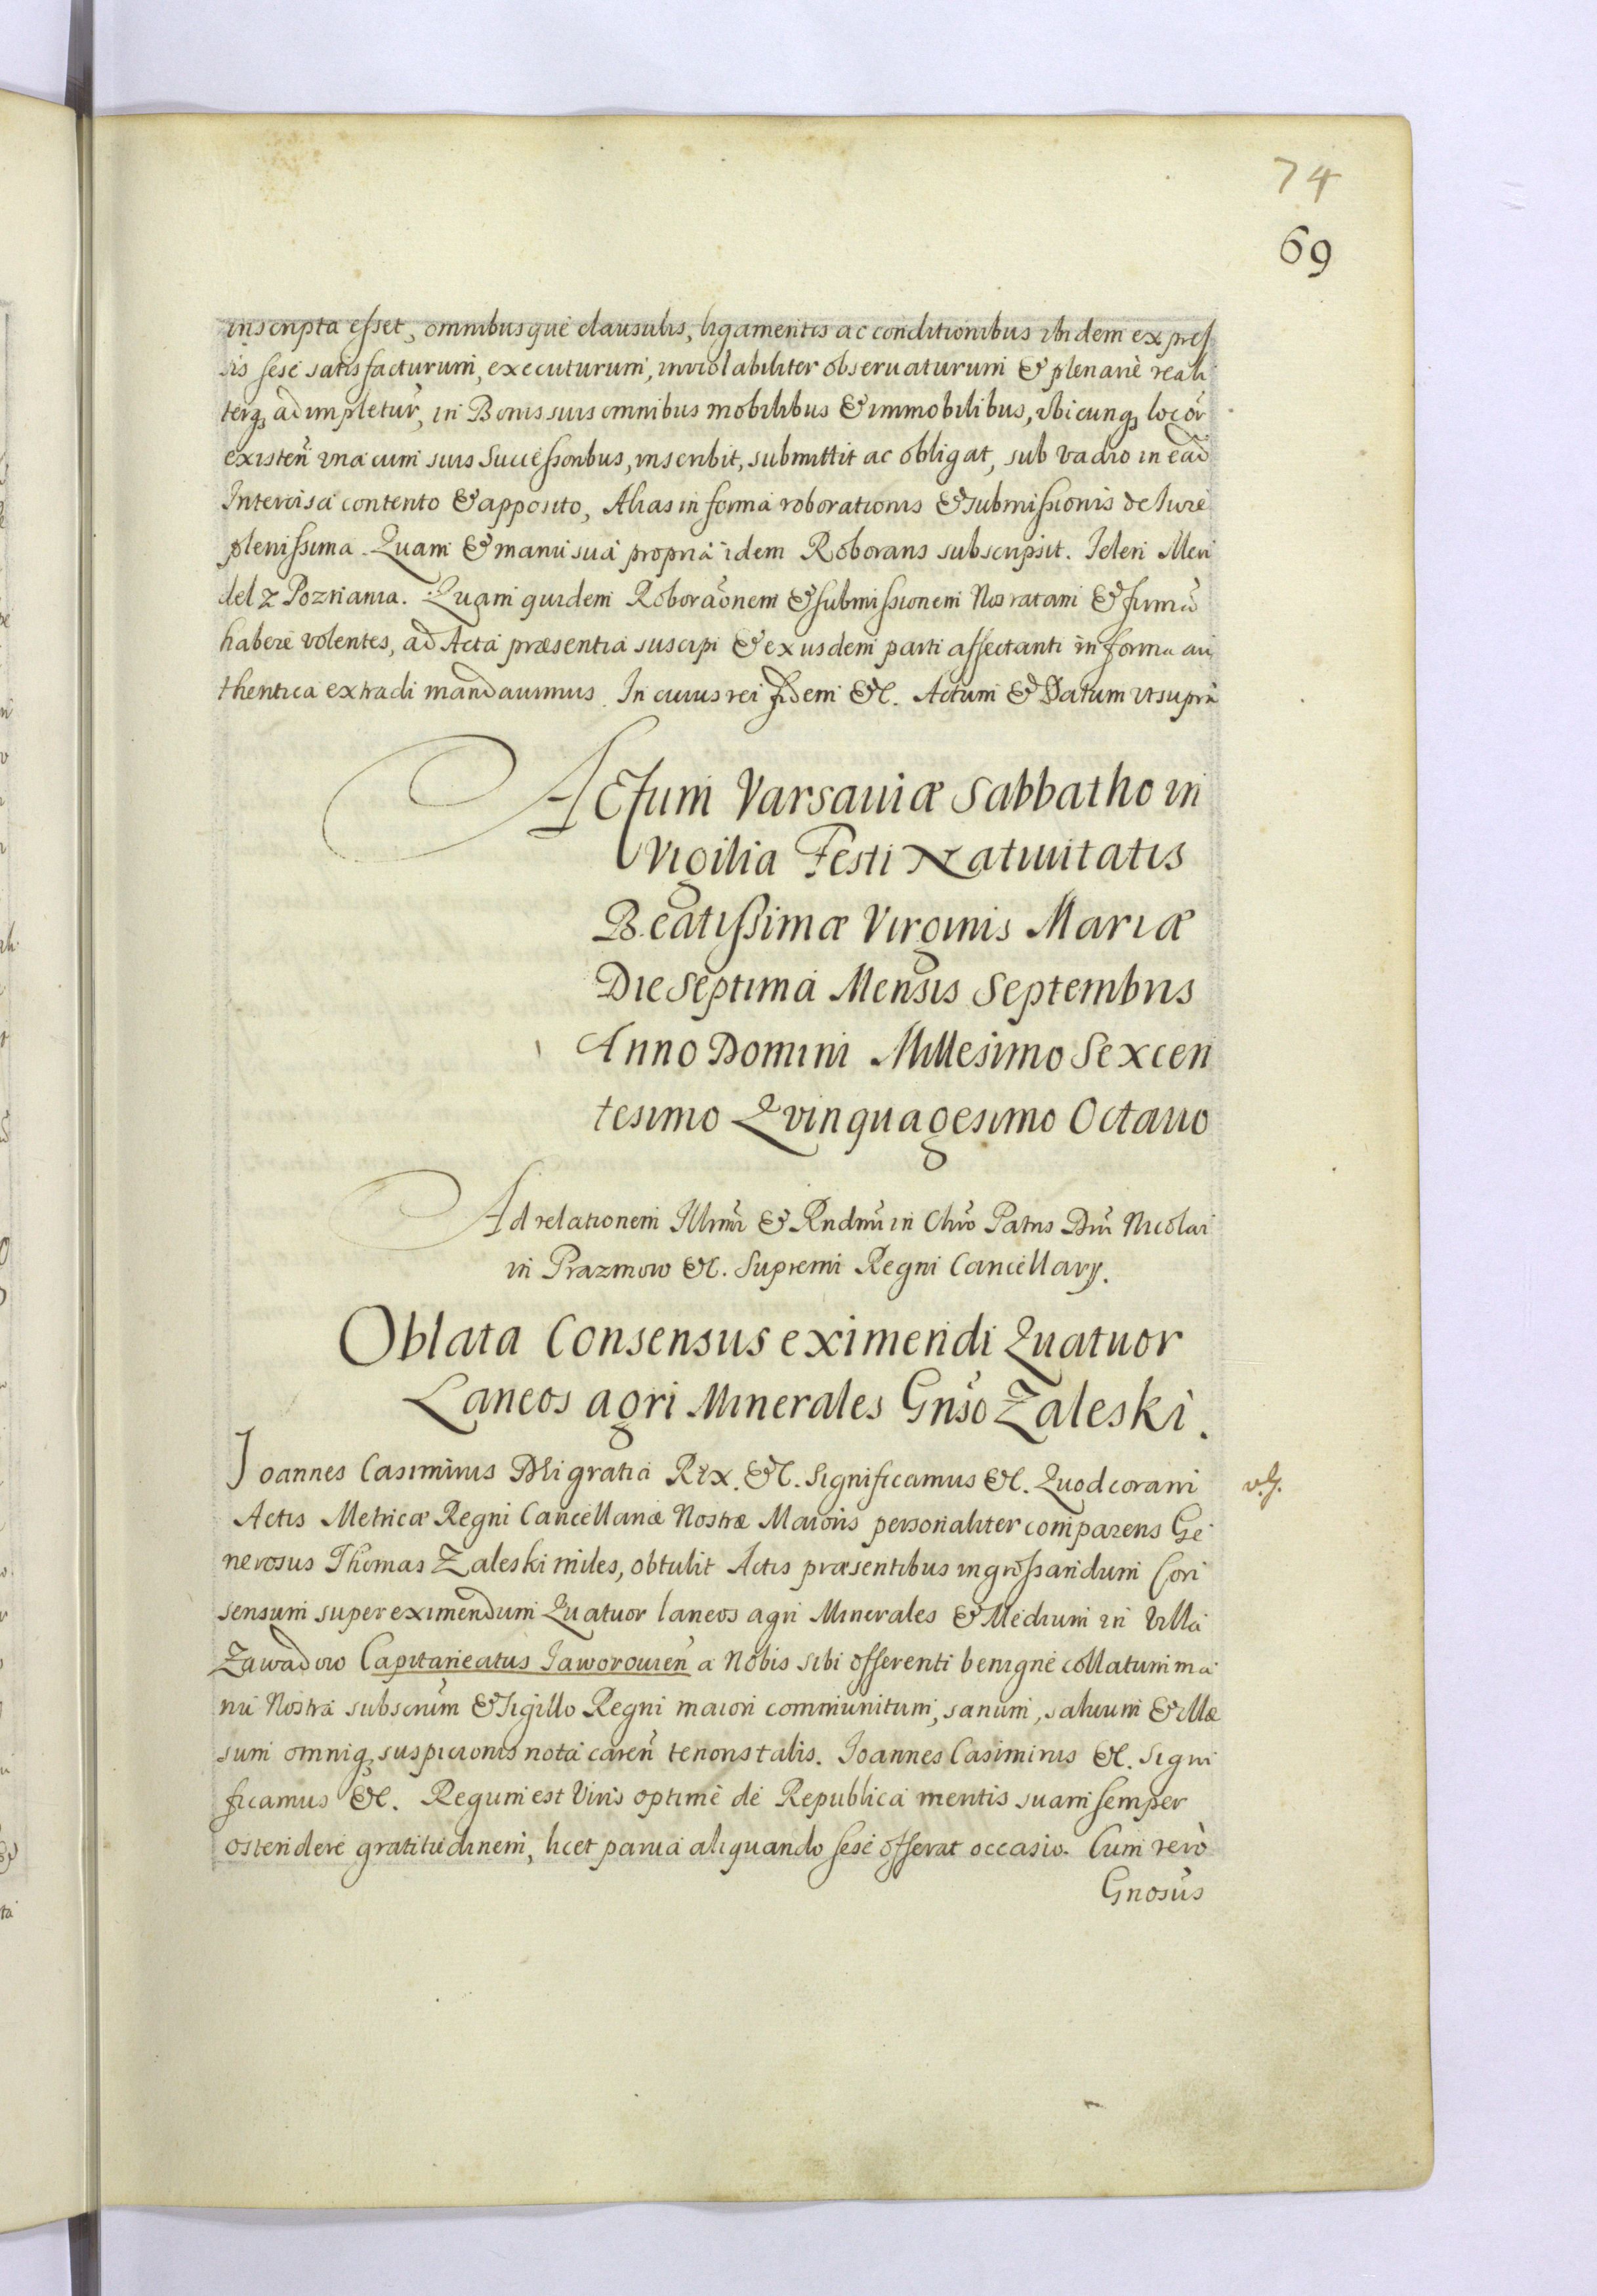 74
69
inscripta esset, omnibusque clausulis, ligamentis ac conditionibus ibidem expres
sis sese satisfacturum, executurum, inviolabiliter obseruaturum & plenariè reali
terq, adimpletur̃, in Bonis suis omnibus mobilibus & immobilibus, vbicunq, locor̃
existen̄ vna cum suis Successoribus, inscribit, submittit ac obligat, sub vadio in ead̃
Intercisa contento & apposito, Alias in forma roborationis & submissionis de Iure
plenissima. Quam & manu sua propria idem Roborans subscripsit. Jelen Men
del z Poznania. Quam quidem Roborãonem & submissionem Nos ratam & firmũ
habere volentes, ad Acta præsentia suscipi & ex usdem parti affectanti in forma au
thentica extradi mandauimus. In cuius rei fidem &c. Actum & Datum vt supra
Actum Varsauiæ Sabbatho in
Vigilia Festi Natiuitatis
Beatissimæ Virginis Mariæ
Die Septima Mensis Septembris
Anno Domini Millesimo Sexcen
tesimo Qvinquagesimo Octauo
Ad relationem Illmi & Rndmi in Chro Patris Dni Nicolai
in Prazmow &c. Supremi Regni Cancellarij.
Oblata Consensus eximendi Quatuor
Laneos agri Minerales Gnso Zaleski.
Joannes Casimirus Dei gratia Rex. &c. Significamus &c. Quod coram
v.g.
Actis Metricæ Regni Cancellariæ Nostræ Maioris personaliter comparens Ge
nerosus Thomas Zaleski miles, obtulit Actis præsentibus ingrossandum Con
sensum super eximendum Quatuor laneos agri Minerales & Medium in Villa
Zawadow Capitaneatus Jaworouien̄ a Nobis sibi offerenti benigne collatum ma
nu Nostra subscrim̃ & Sigillo Regni maiori communitum, sanum, saluum & illæ
sum omniq, suspicionis nota caren̄ tenoris talis. Joannes Casimirus &c. Signi
ficamus &c. Regum est Viris optimè de Republica meritis suam semper
ostendere gratitudinem, licet parua aliquando sese offerat occasio. Cum verò
Gnosus